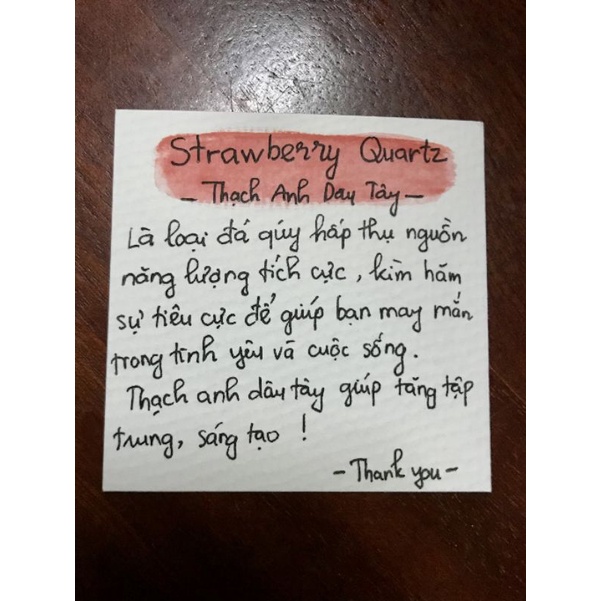 Strawberry Quartz
- Thạch Anh Dâu Tây -
Là loại đá qúy hấp thụ nguồn
năng lượng tích cực, kìm hãm
sự tiêu cực để giúp bạn may mắn
trong tình yêu và cuộc sống.
Thạch anh dâu tây giúp tăng tập
trung, sáng tạo !
- Thank you -